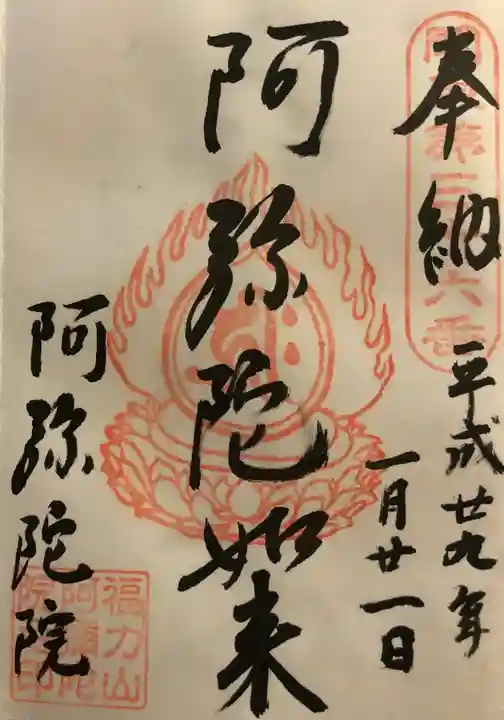 奉納
平成廿九年
一月廿一日
阿弥陀如来
阿弥陀院
福力山
阿彌陀
院
印